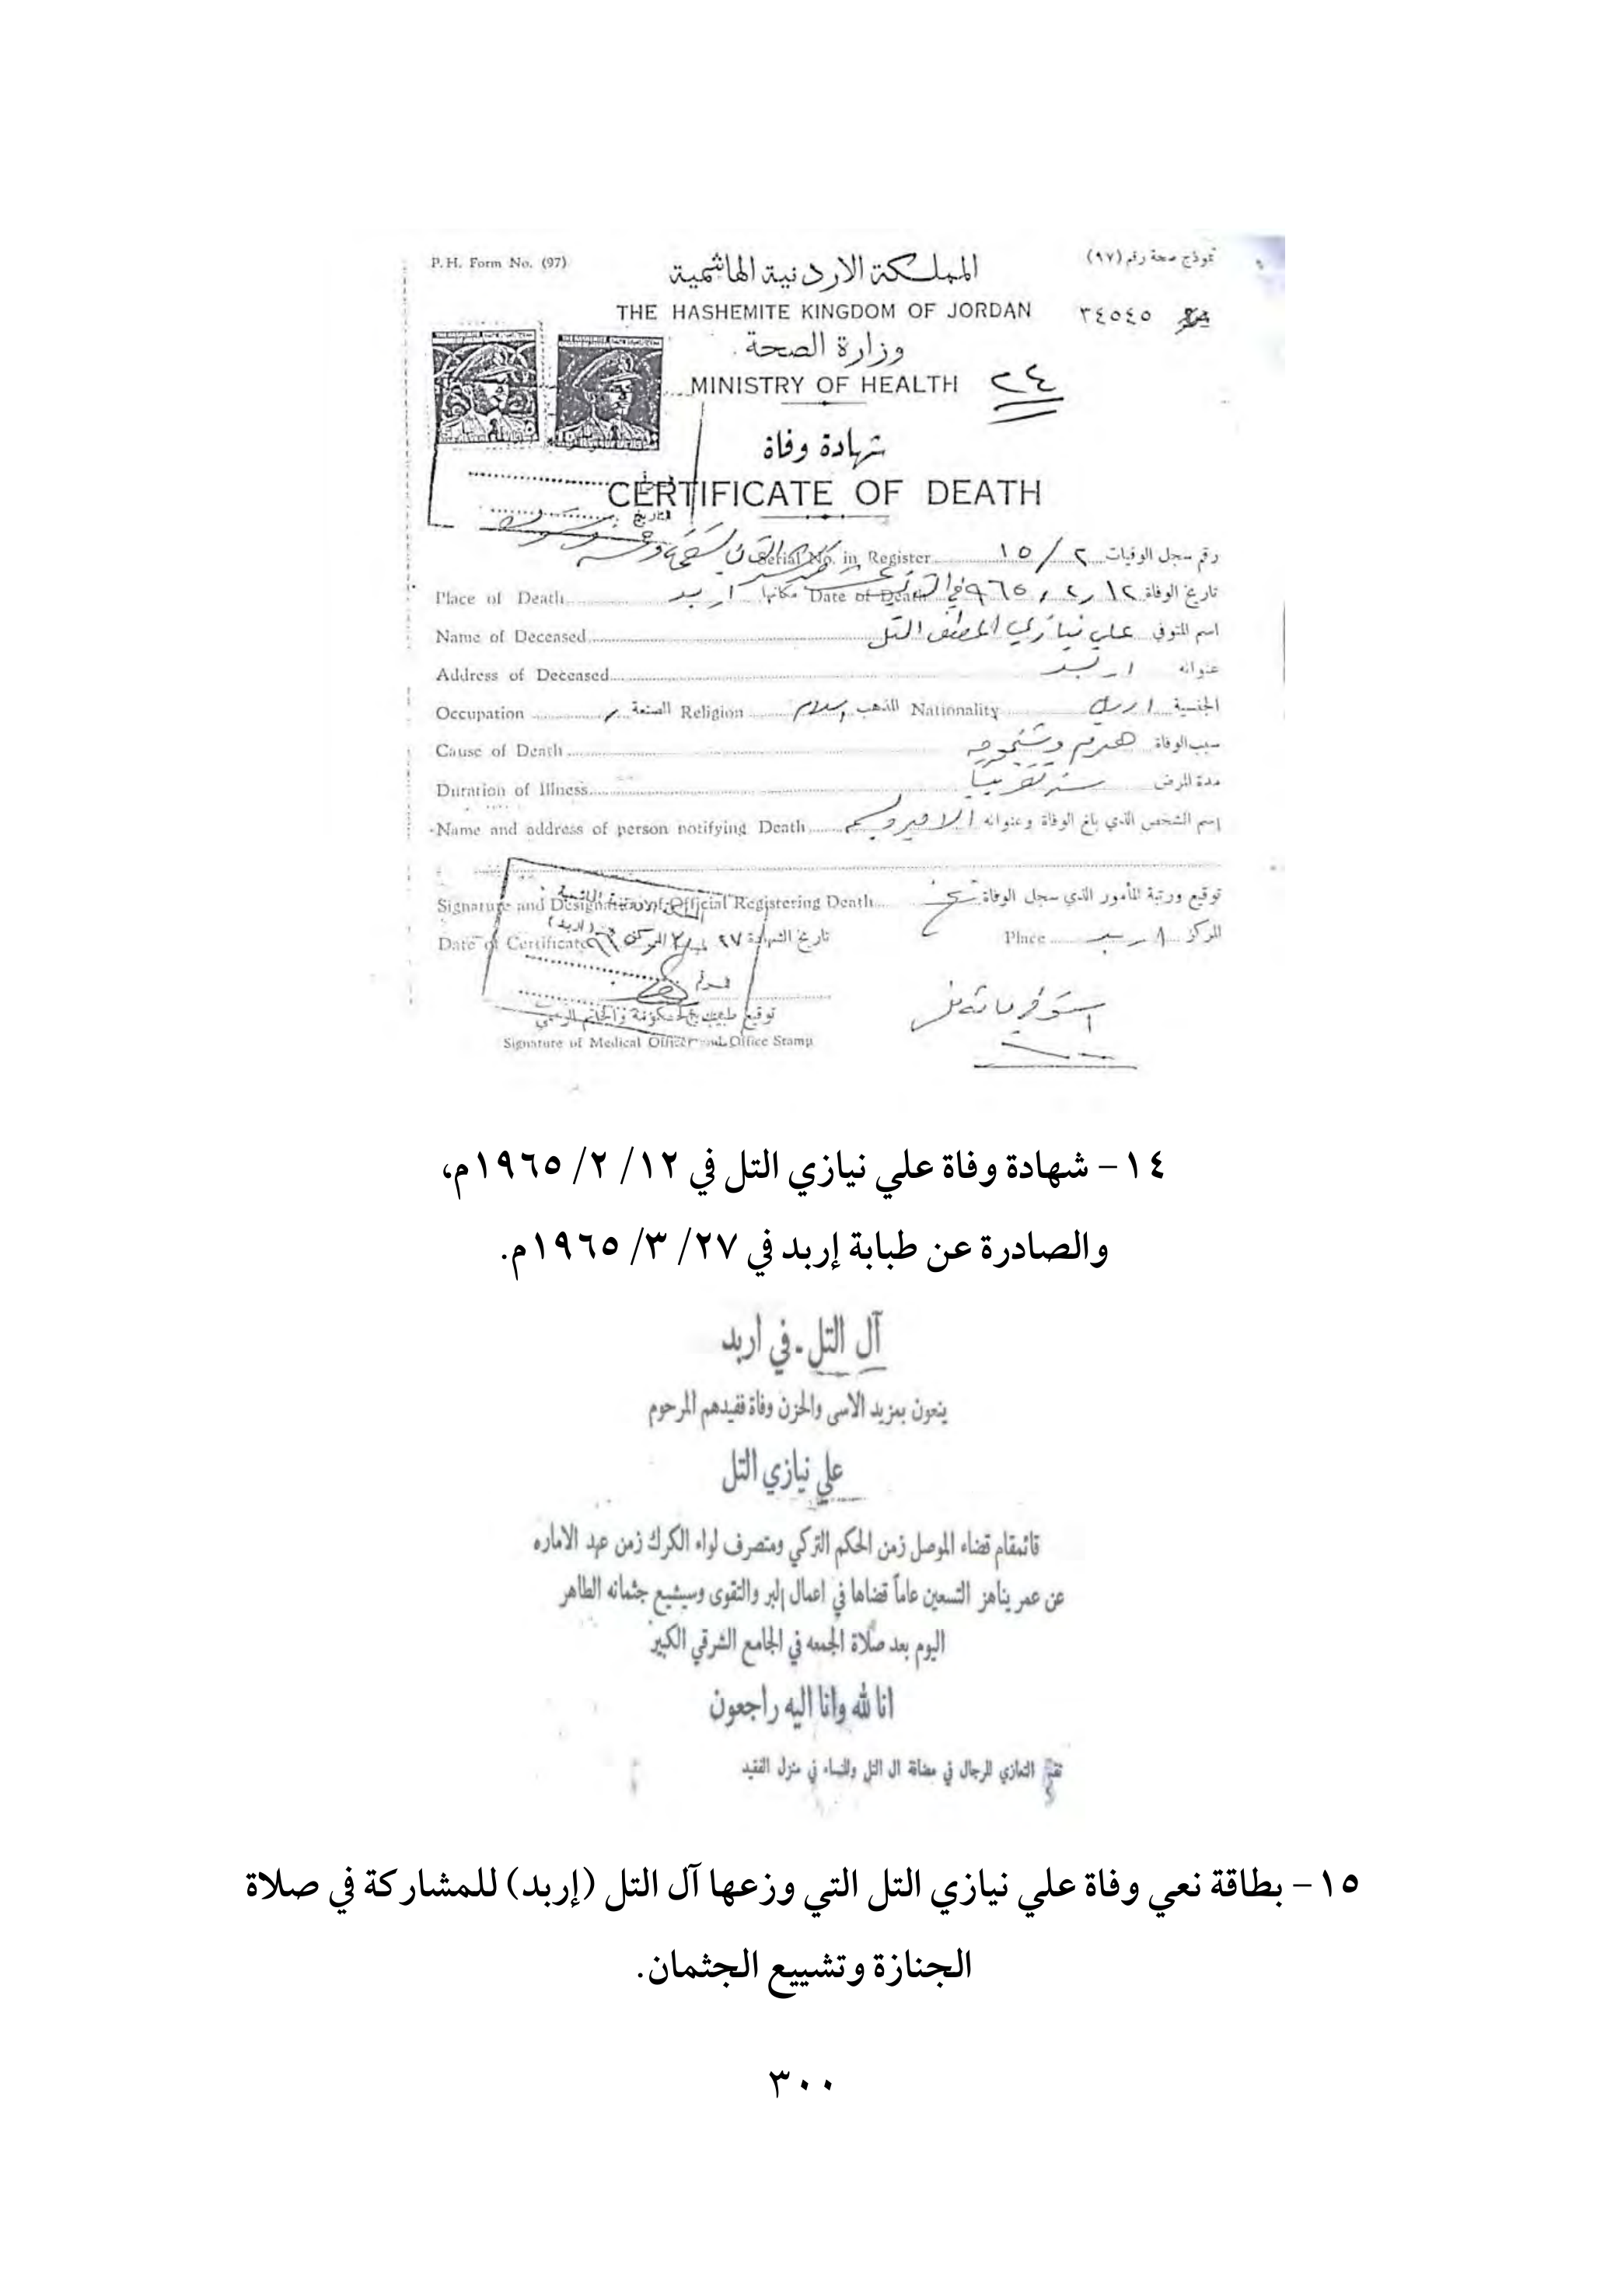 P. H. Form No. (97)
نموذج صحة رقم (٩٧)
المملكة الاردنية الهاشمية
THE HASHEMITE KINGDOM OF JORDAN
٣٤٥٤٥
وزارة الصحة
MINISTRY OF HEALTH
٢٤
شهادة وفاة
CERTIFICATE OF DEATH
التاريخ
رقم سجل الوفيات ٢/١٥ Serial No. in Register
تاريخ الوفاة ١٢/٢/٩٦٥ Date of Death مكانها اربد Place of Death
اسم المتوفي علي نيازي المصطفى التل Name of Deceased
عنوانه اربد Address of Deceased
الجنسية اردني Nationality المذهب اسلام Religion الصنعة Occupation
سبب الوفاة هرم وشيخوخه Cause of Death
مدة المرض سنه تقريبا Duration of Illness
إسم الشخص الذي بلغ الوفاة وعنوانه Name and address of person notifying Death
توقيع ورتبة المأمور الذي سجل الوفاة Signature and Designation of Official Registering Death
المركز اربد Place تاريخ الشهادة ٢٧ Date of Certificate
توقيع طبيب الحكومة والخاتم الرسمي
Signature of Medical Officer and Office Stamp
١٤- شهادة وفاة علي نيازي التل في ١٢/ ٢/ ١٩٦٥م،
والصادرة عن طبابة إربد في ٢٧/ ٣/ ١٩٦٥م.
آل التل - في اربد
ينعون بمزيد الاسى والحزن وفاة فقيدهم المرحوم
علي نيازي التل
قائمقام قضاء الموصل زمن الحكم التركي ومتصرف لواء الكرك زمن عهد الاماره
عن عمر يناهز التسعين عاماً قضاها في اعمال البر والتقوى وسيشيع جثمانه الطاهر
اليوم بعد صلاة الجمعه في الجامع الشرقي الكبير
انا لله وانا اليه راجعون
تقبل التعازي للرجال في مضافة ال التل وللنساء في منزل الفقيد
١٥- بطاقة نعي وفاة علي نيازي التل التي وزعها آل التل (إربد) للمشاركة في صلاة
الجنازة وتشييع الجثمان.
٣٠٠